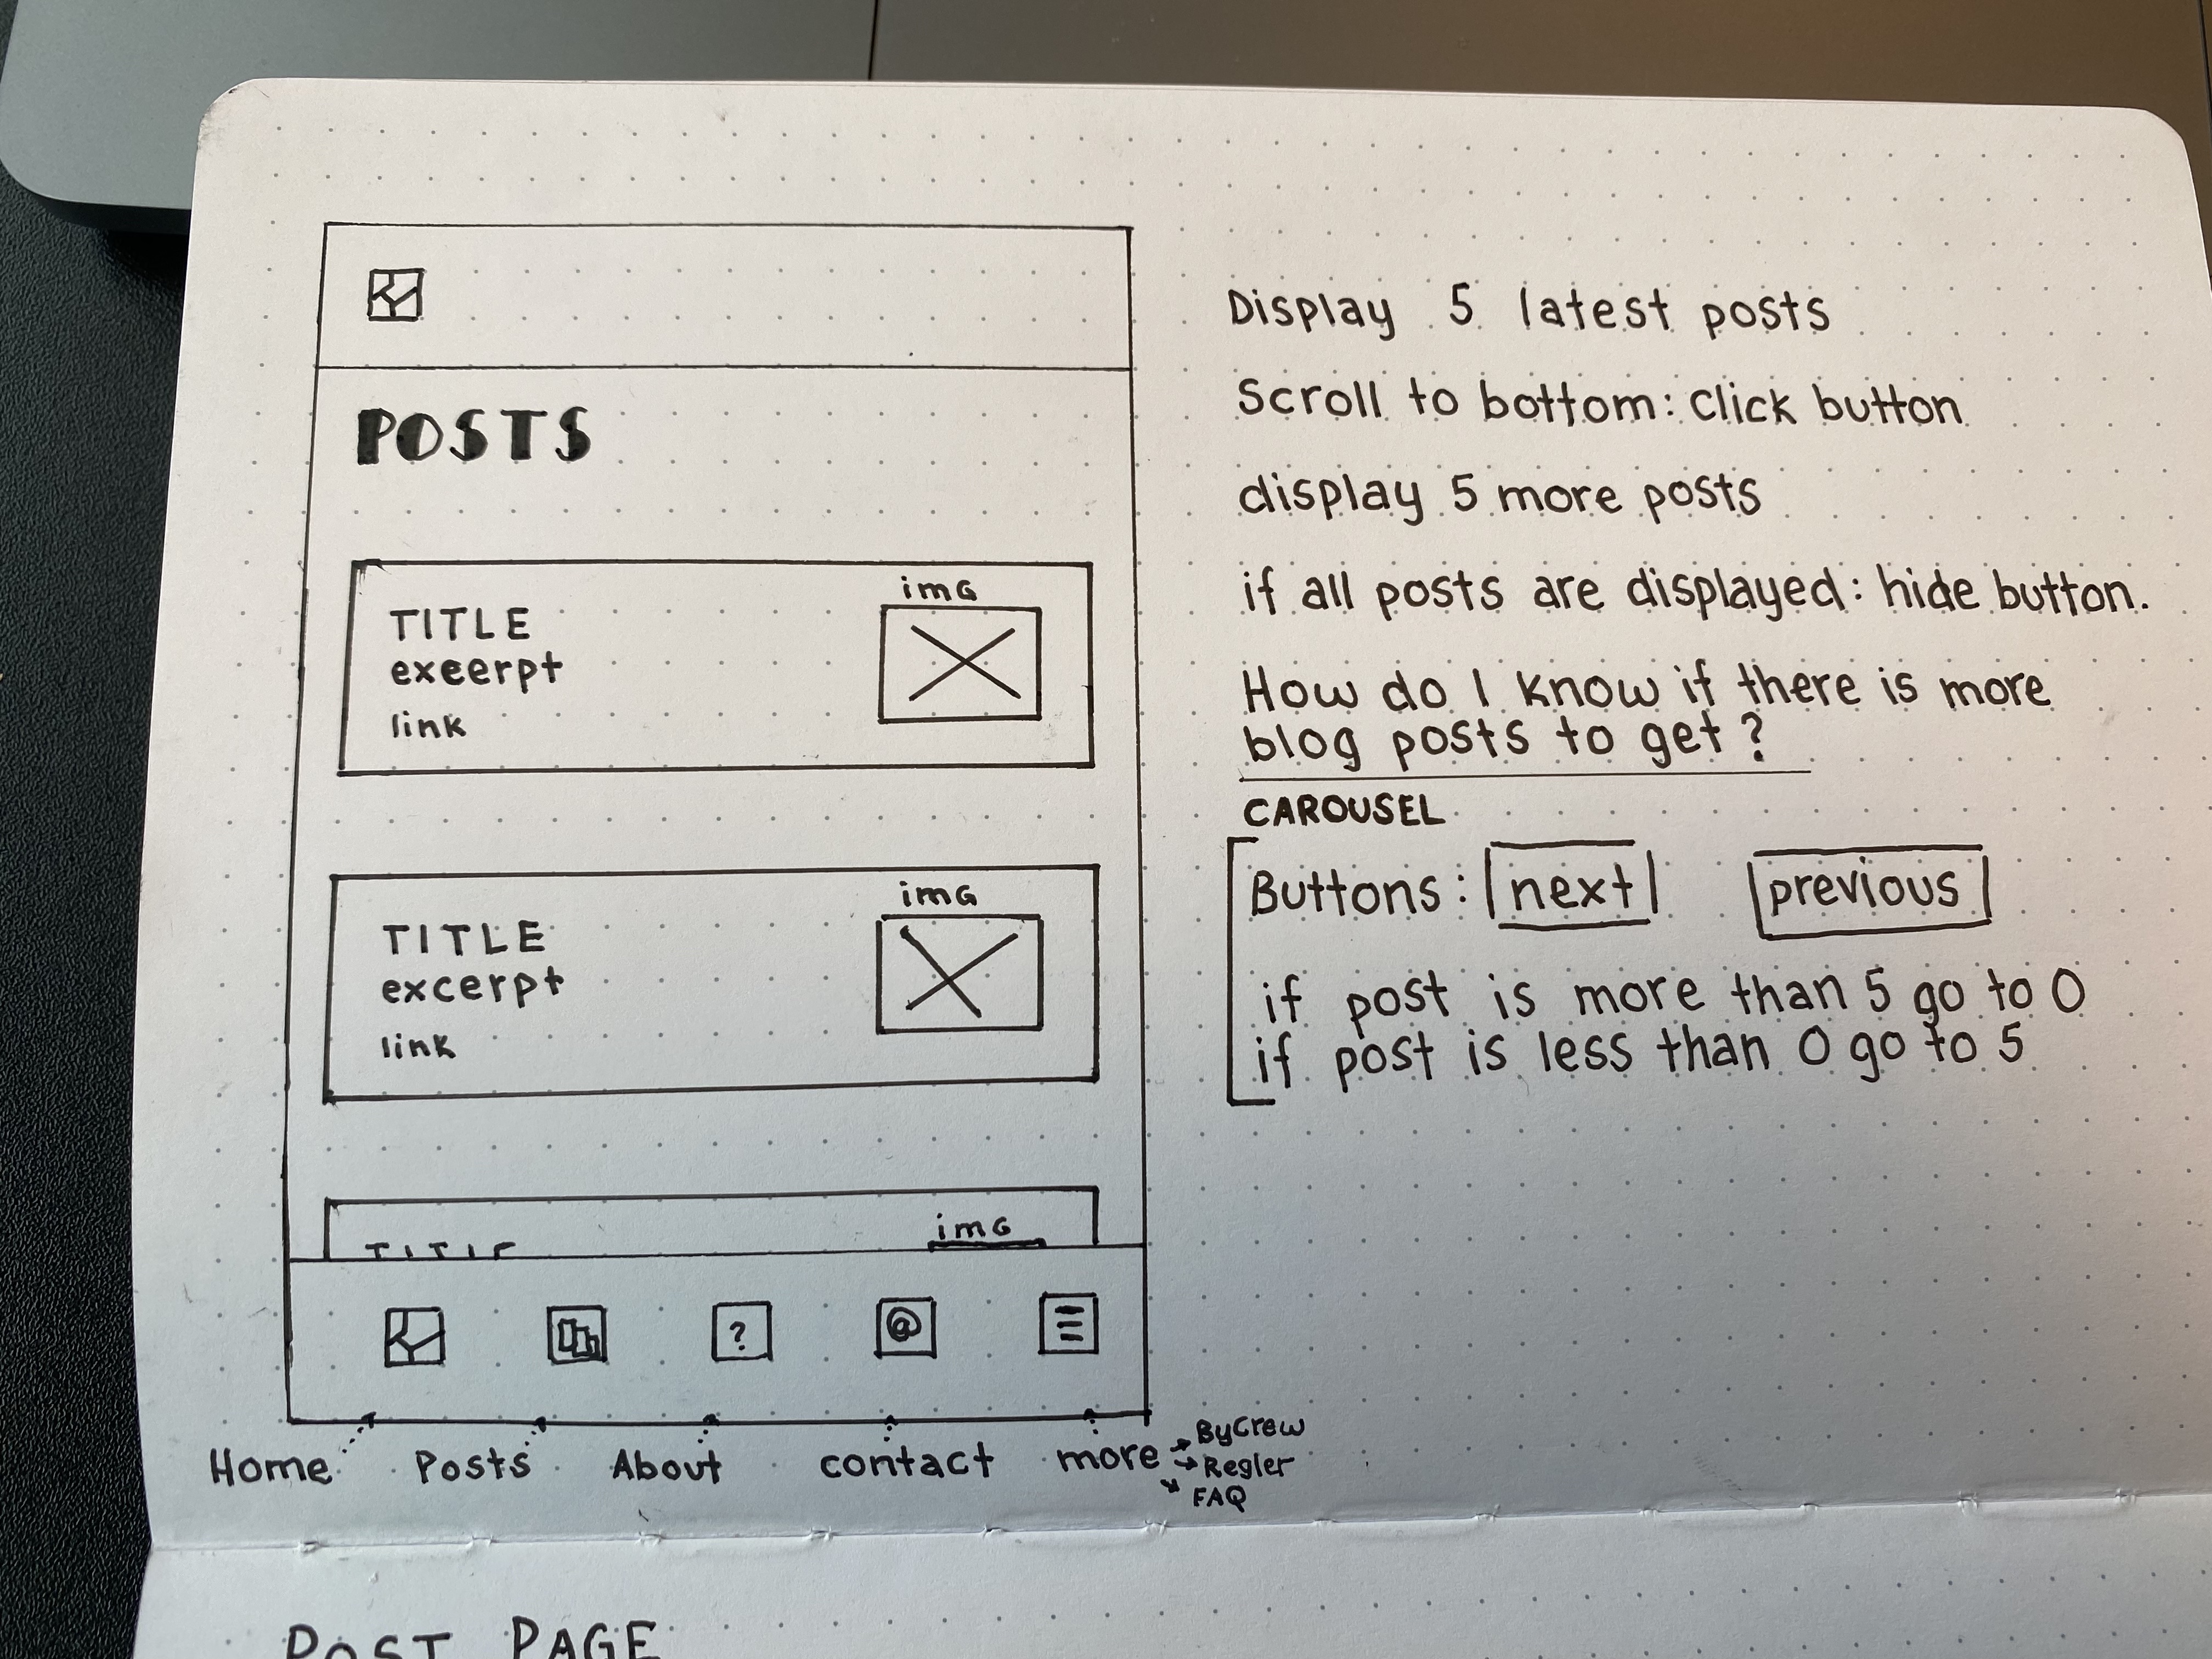 POSTS
img
TITLE
exeerpt
link
img
TITLE
excerpt
link
img
TITLE
?
@
Home Posts About contact more
ByCrew
Regler
FAQ
Display 5 latest posts
Scroll to bottom: click button
display 5 more posts
if all posts are displayed: hide button.
How do I know if there is more
blog posts to get?
CAROUSEL
Buttons: next previous
if post is more than 5 go to 0
if post is less than 0 go to 5
POST PAGE